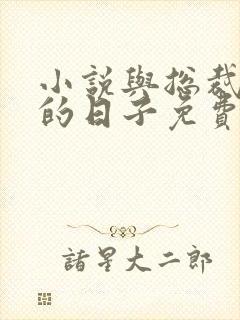 小說與総裁
的日子免費
諸星大二郎